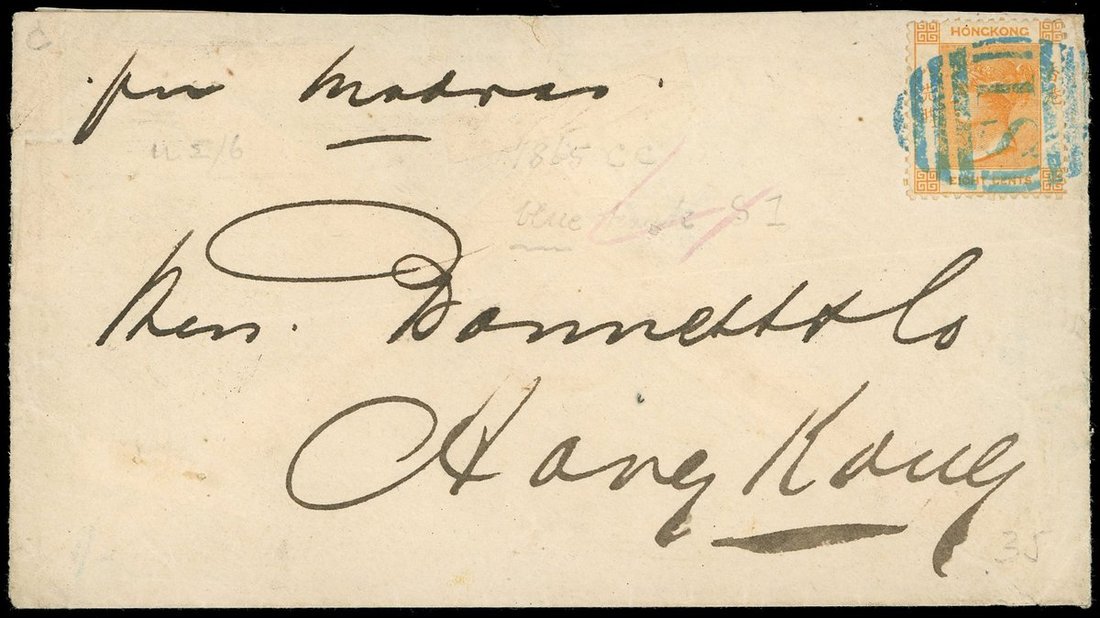 per Madras.
HONGKONG
S1
EIGHT CENTS
1865 CC
blue S1
Mess. Donnett & Co
Hong Kong
35